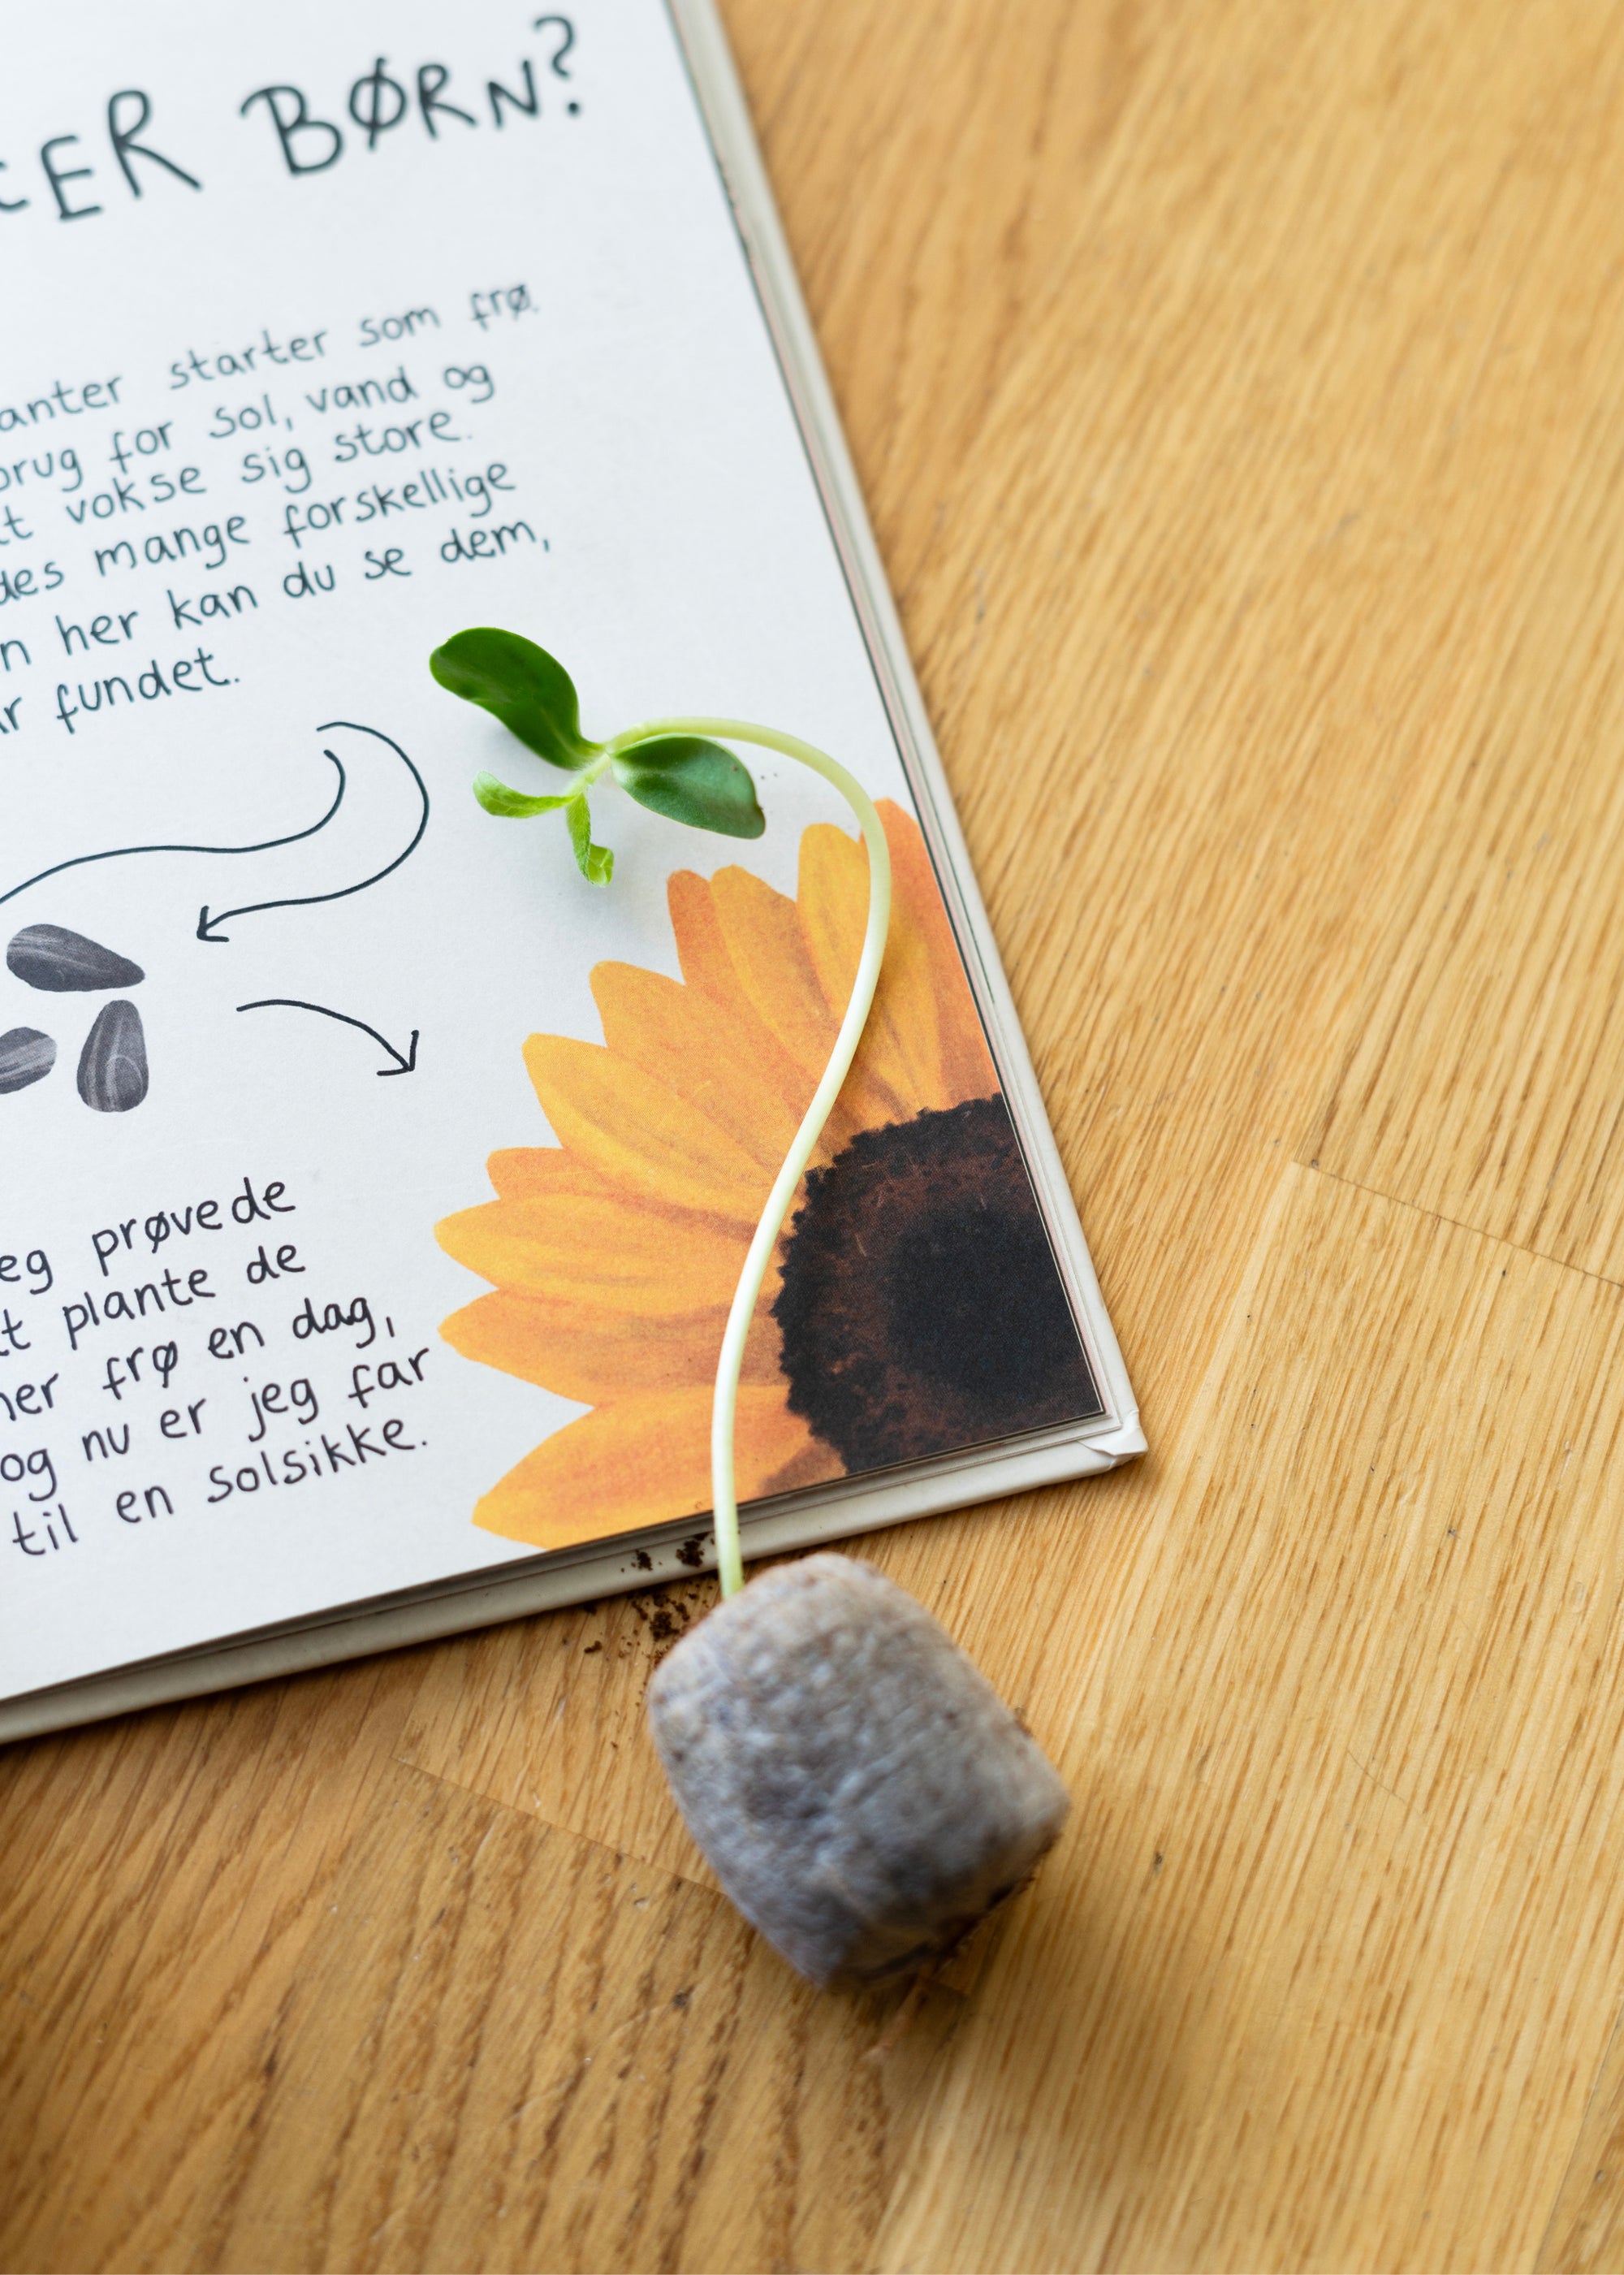 TER BØRN?
anter starter som frø.
brug for sol, vand og
t vokse sig store.
des mange forskellige
n her kan du se dem,
r fundet.
eg prøvede
t plante de
her frø en dag,
og nu er jeg far
til en solsikke.